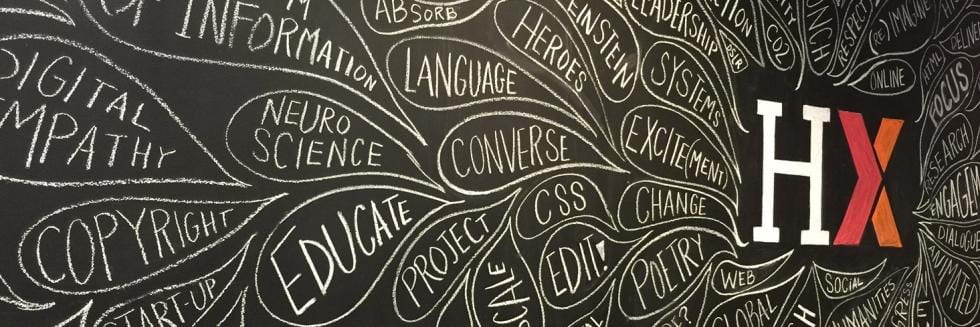 OF INFORMATION
ABSORB
HEROES
EINSTEIN
LEADERSHIP
CO2
RESPECT
(RE)IMAGINE
DIGITAL
EMPATHY
LANGUAGE
SYSTEMS
ONLINE
HTML
FOCUS
NEURO
SCIENCE
CONVERSE
EXCITE(MENT)
HX
RESEARCH
COPYRIGHT
EDUCATE
CSS
CHANGE
PROJECT
EDIT!
POETRY
WEB
SOCIAL
START-UP
HUMANITIES